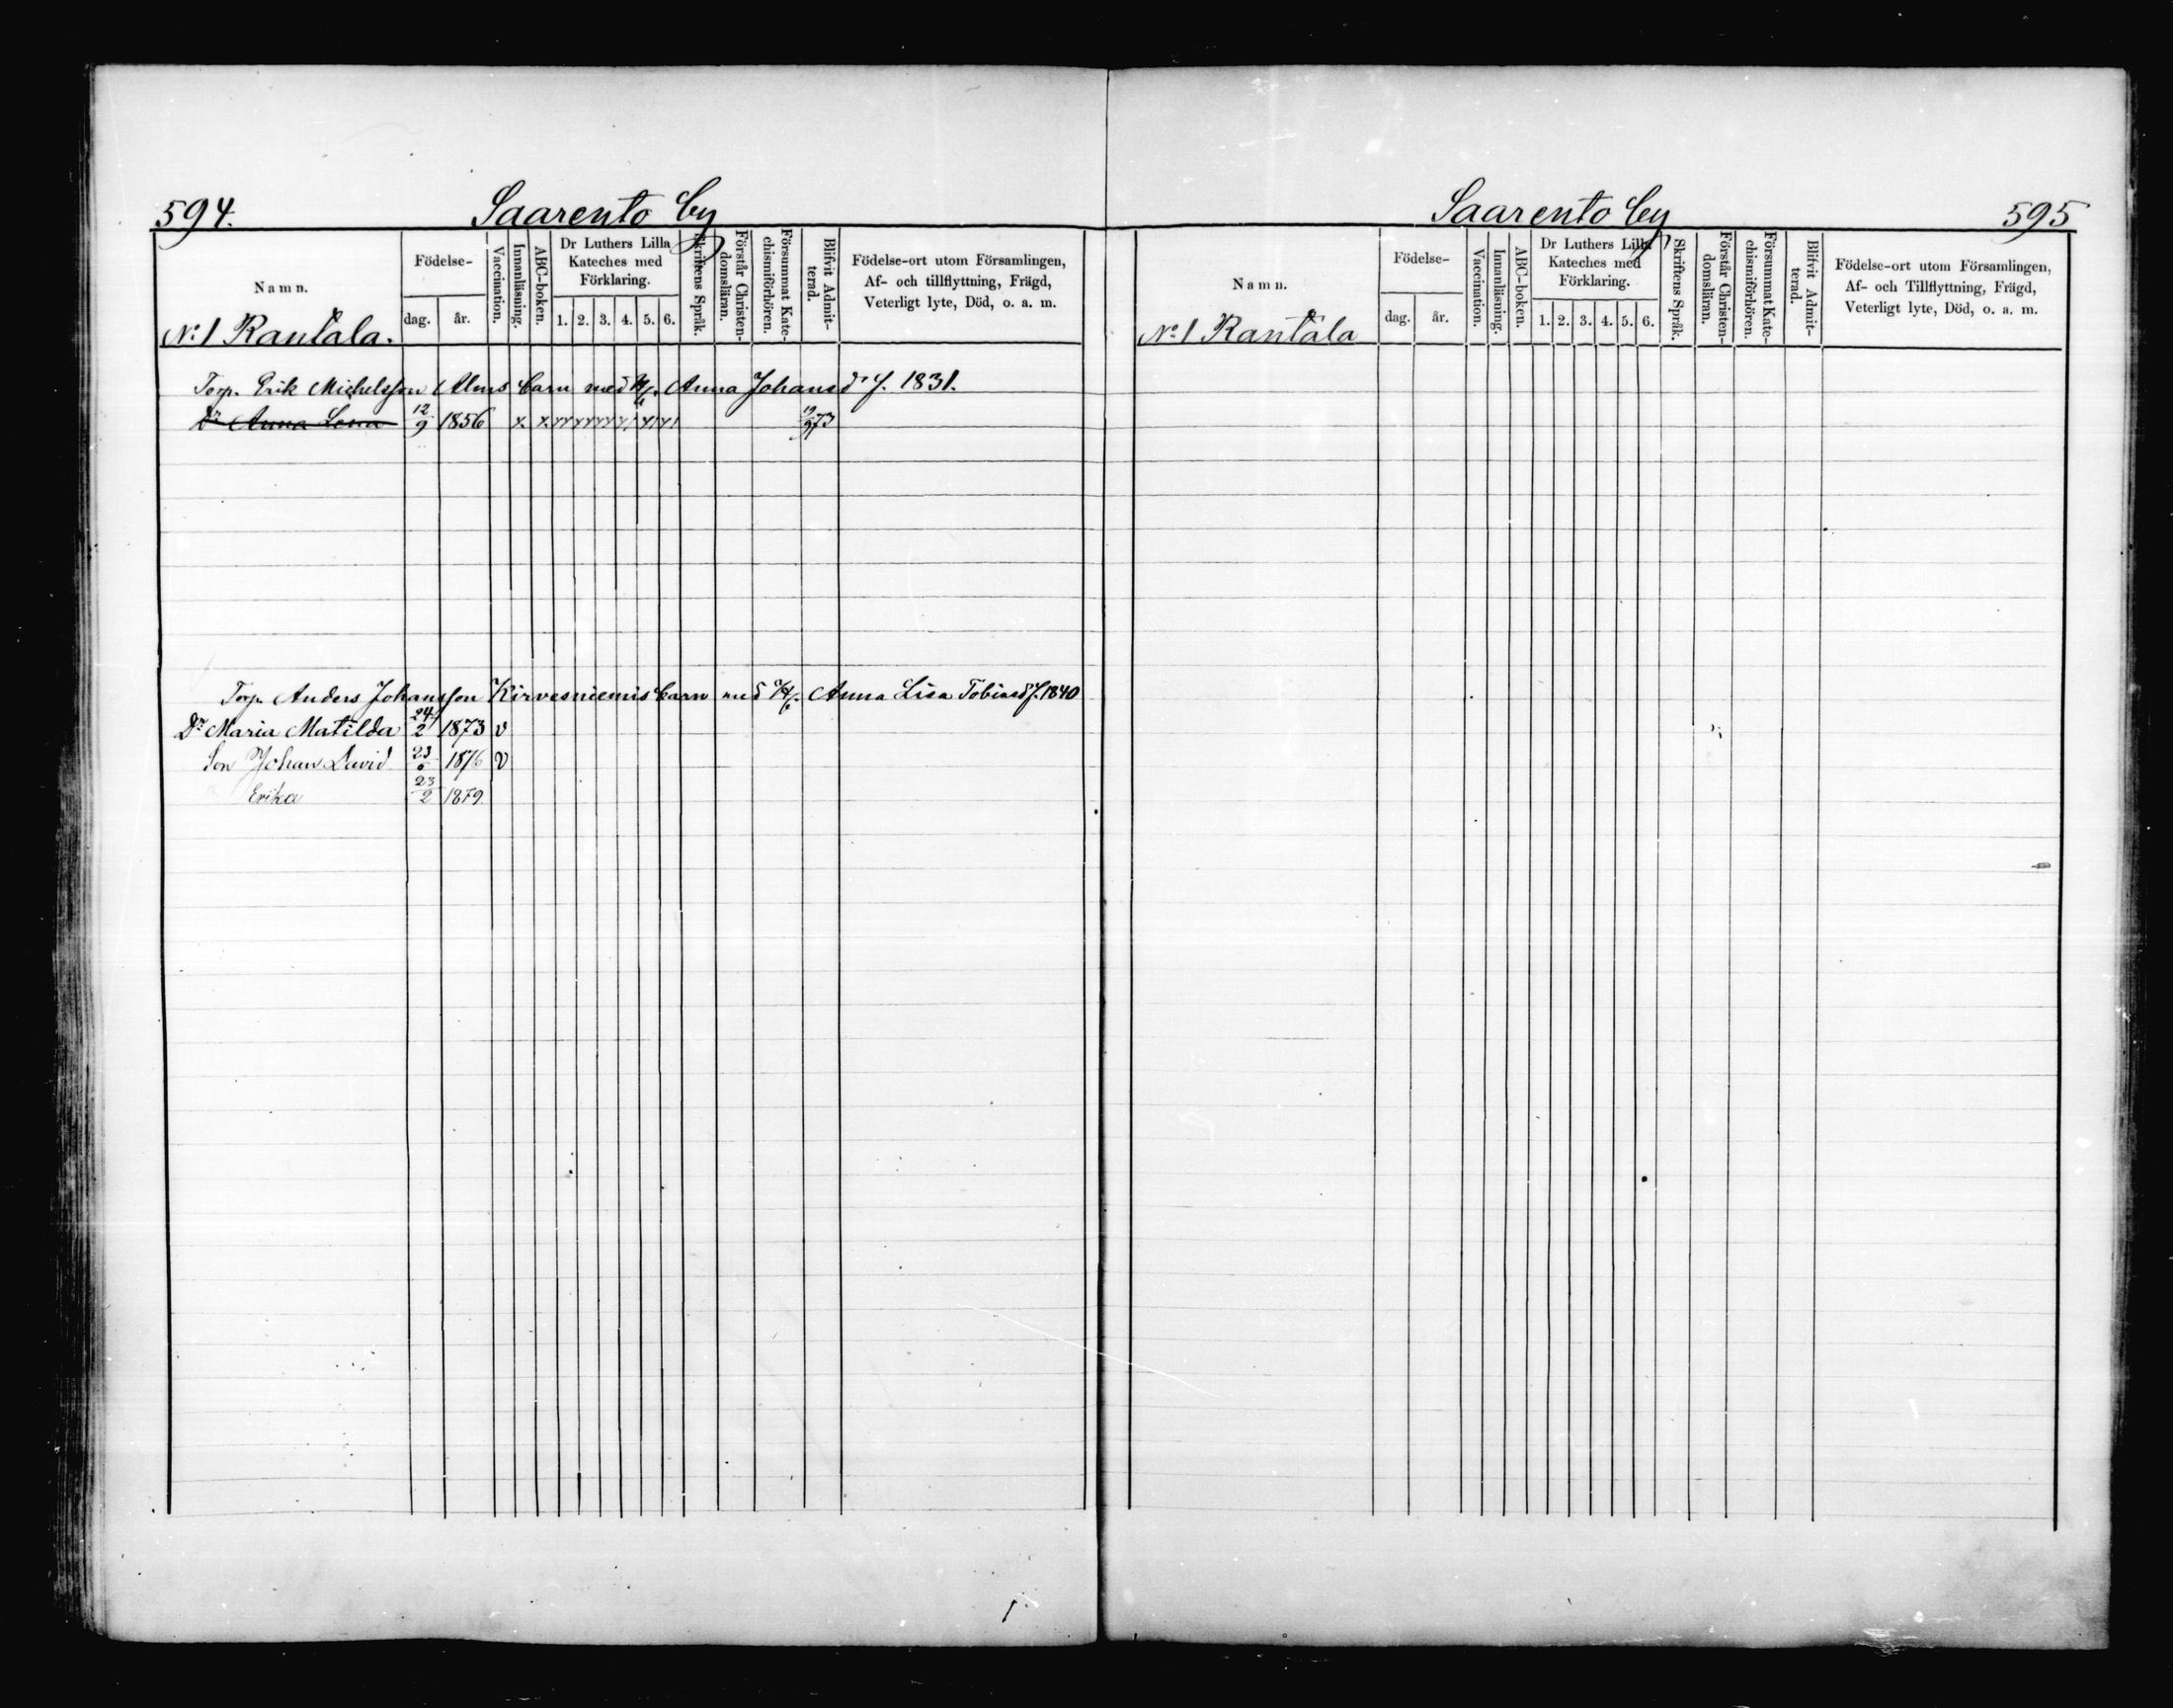 594.
Saarento by
Namn.
Födelse-
dag.
år.
Vaccination.
Innanläsning.
ABC-boken.
Dr Luthers Lilla
Kateches med
Förklaring.
1. 2. 3. 4. 5. 6.
Skriftens Språk.
Förstår Christen-
domsläran.
Försummat Kate-
chismiförhören.
Blifvit Admit-
terad.
Födelse-ort utom Församlingen,
Af- och tillflyttning, Frägd,
Veterligt lyte, Död, o. a. m.
No 1 Rantala.
Torp. Erik Michelsson Alms barn med H. Anna Johansdr f. 1831.
Dr Anna Lena 12/9 1856 x x
Torp. Anders Johansson Kirvesniemis barn med H. Anna Lisa Tobiasdr f. 1840
Dr Maria Matilda 24/2 1873 v
Son Johan David 23 1876 v
Erika 23/2 1879
Saarento by
595
Namn.
Födelse-
dag.
år.
Vaccination.
Innanläsning.
ABC-boken.
Dr Luthers Lilla
Kateches med
Förklaring.
1. 2. 3. 4. 5. 6.
Skriftens Språk.
Förstår Christen-
domsläran.
Försummat Kate-
chismiförhören.
Blifvit Admit-
terad.
Födelse-ort utom Församlingen,
Af- och Tillflyttning, Frägd,
Veterligt lyte, Död, o. a. m.
No 1 Rantala